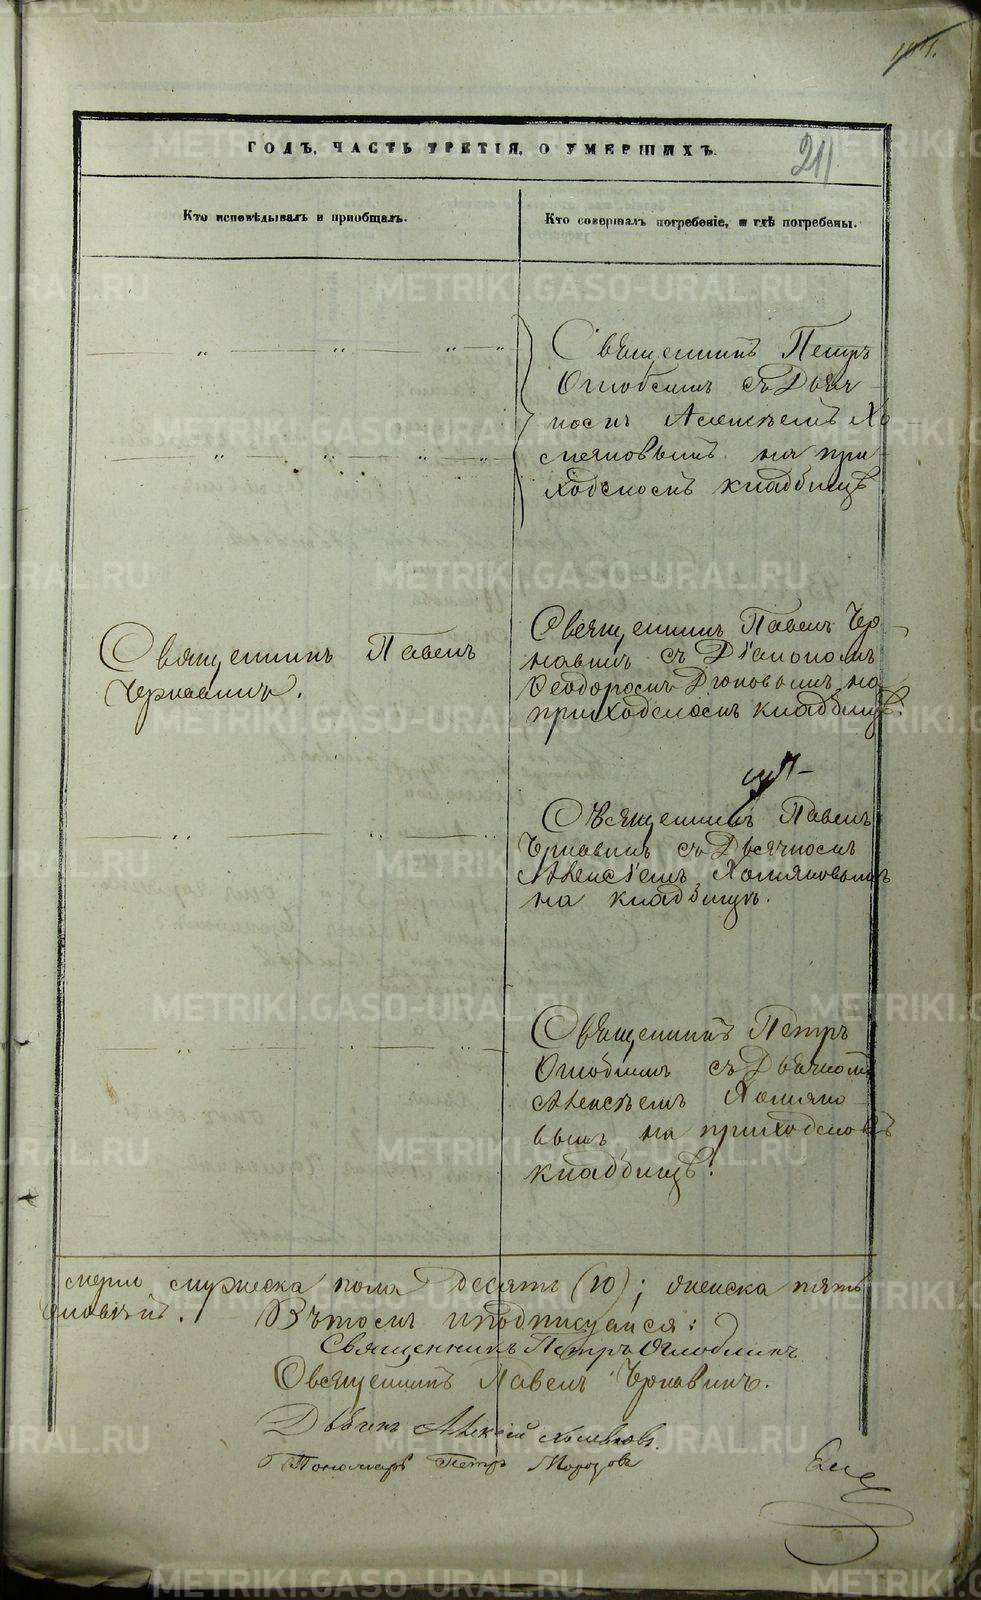 211
ГОДЪ, ЧАСТЬ ТРЕТІЯ, О УМЕРШИХЪ.
Кто исповѣдывалъ и пріобщалъ.
Кто совершалъ погребеніе, и гдѣ погребены.
Священникъ Петръ
Оглоблинъ съ Дьяч-
комъ Алексѣемъ Хо-
мяковымъ на при-
ходскомъ кладбищѣ
Священникъ Павелъ
Чернавинъ.
Священникъ Павелъ Чер-
навинъ съ Діакономъ
Ѳеодоромъ на
приходскомъ кладбищѣ.
Священникъ Павелъ
Чернавинъ съ Дьячкомъ
Алексѣемъ Хомяковымъ
на кладбищѣ.
Священникъ Петръ
Оглоблинъ съ Дьячкомъ
Алексѣемъ Хомяко-
вымъ на приходскомъ
кладбищѣ.
мужеска пола десять (10); женска пять
Въ томъ и подписуемся:
Священникъ Петръ Оглоблинъ
Священникъ Павелъ Чернавинъ.
Дьячекъ Алексѣй Хомяковъ.
Пономарь Петръ Морозовъ
METRIKI.GASO-URAL.RU